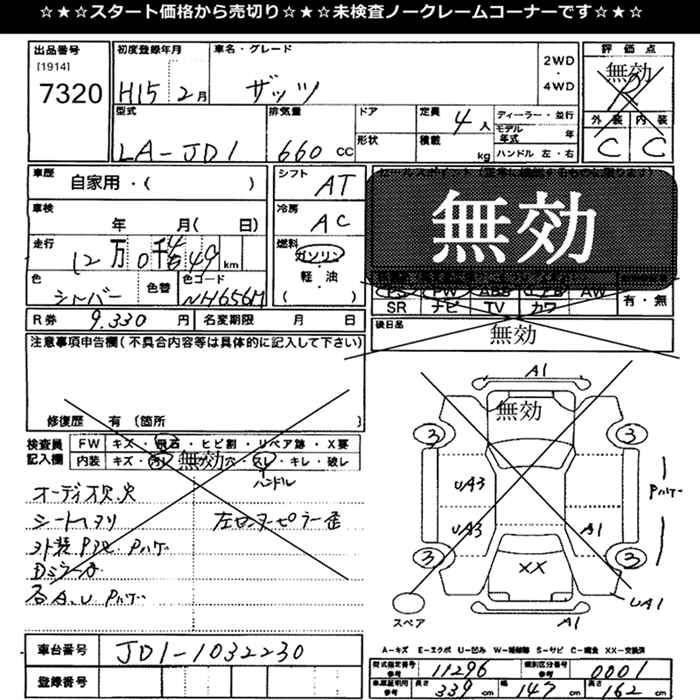 ☆★☆★スタート価格から売切り☆★☆★未検査ノークレームコーナーです☆★☆
出品番号 初度登録年月 車名・グレード 評価点
[1914] 2WD
7320 H15 2月 ザッツ ・ 無効
4WD R
型式 排気量 ドア 定員 4人 ディーラー・並行 外装 内装
モデル年式 年
LA-JD1 660 CC 形状 積載 kg ハンドル 左・右 C C
車歴 自家用・( ) シフト AT
無効
車検 年 月( 日) 冷房 AC
走行 12万0千449km 燃料 ガソリン
軽・油
色 シルバー 色替 色コード NH656M ( )
PS PW ABS エアB AW 有・無
SR ナビ TV カワ
R券 9,330円 名変期限 月 日 後日品
無効
注意事項申告欄(不具合内容等は具体的に記入して下さい)
修復歴 有 (箇所 )
検査員記入欄 FW キズ・飛石・ヒビ割・リペア跡・X要
内装 キズ・汚レ・無効穴・スレ・キレ・破レ
ハンドル
オーディオ欠品
シートヘタリ 左センターピラー歪
A1
無効
3 3
UA3
UA3 A1
3 3
XX
UA1
スペア
A1
車台番号 JD1-1032230
登録番号
A-キズ E-エクボ U-凹み W-補修跡 S-サビ C-腐食 XX-交換済
型式指定番号 参考 11296 類別区分番号 参考 0001
車庫証明用 参考 長さ 339cm 幅 147cm 高さ 162cm